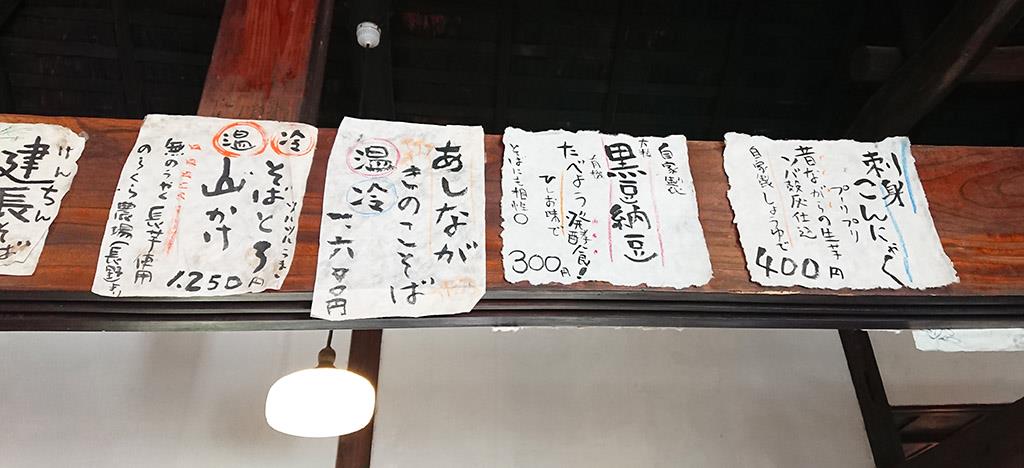 刺身こんにゃく
プーリプリ
昔ながらの生芋
ソバ殻灰仕込
自家製しょうゆで
400円
自家製
大粒
黒豆納豆
有機
たべよう発酵食!
ひしお味で
そばにも相性〇
300円
あしなが
きのこそば
温
冷
一、六〇〇円
冷
温
ツルツルうまっ
そばとろ
山かけ
無のうやく長芋使用
のらくら農場(長野)より
1.250円
けんちん
建長そば